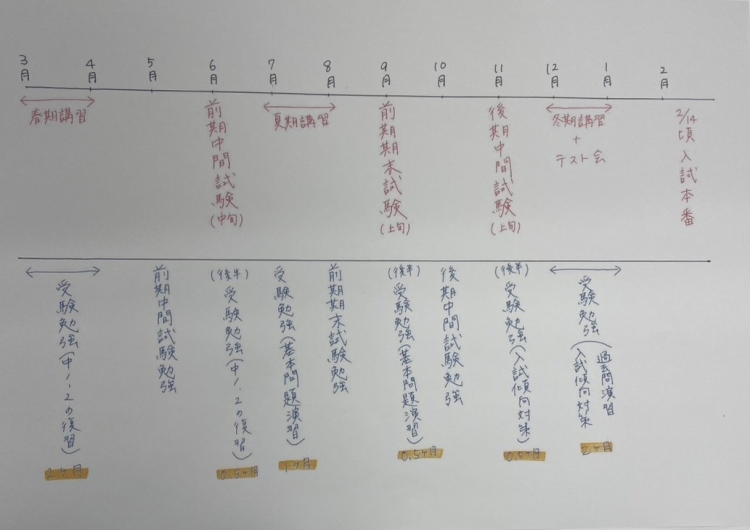 3月
4月
5月
6月
7月
8月
9月
10月
11月
12月
1月
2月
春期講習
前期中間試験(中旬)
夏期講習
前期期末試験(上旬)
後期中間試験(上旬)
冬期講習
+
テスト会
2/14頃入試本番
受験勉強(中1.2の復習)
2ヶ月
前期中間試験勉強
(後半)
受験勉強(中1.2の復習)
0.5ヶ月
受験勉強(基本問題演習)
1ヶ月
前期期末試験勉強
(後半)
受験勉強(基本問題演習)
0.5ヶ月
後期中間試験勉強
(後半)
受験勉強(入試傾向対策)
0.5ヶ月
受験勉強(過去問演習
入試傾向対策
2ヶ月